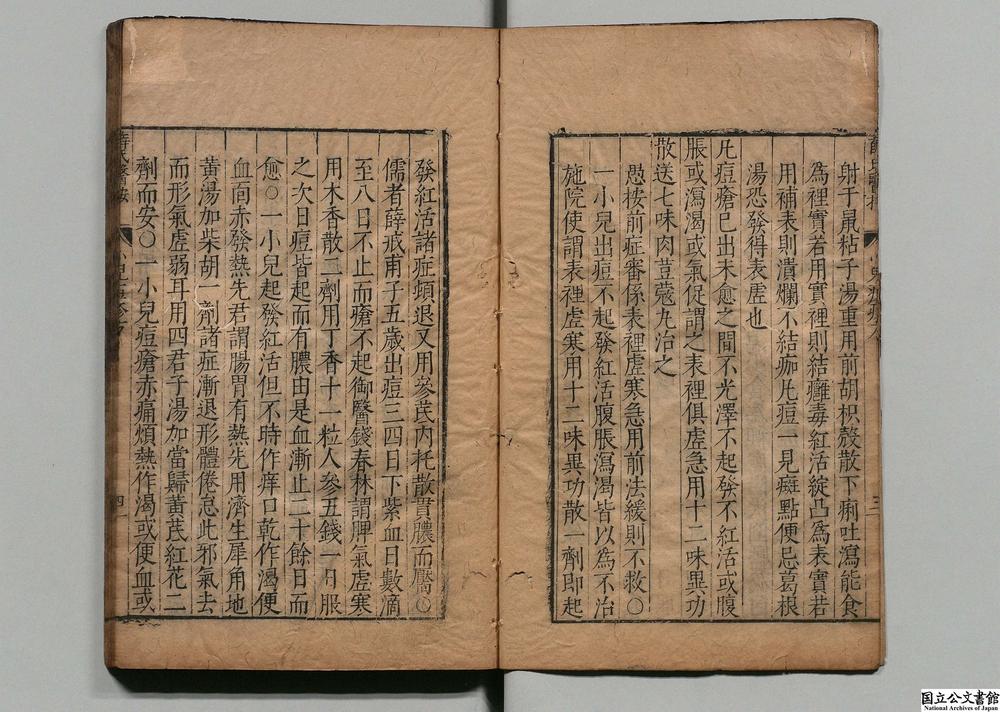 射干鼠粘子湯重用前胡枳殼散下痢吐瀉能食
爲裡實若用實裡則結癰毒紅活綻凸爲表實若
用補表則潰爛不結痂凡痘一見斑點便忌葛根
湯恐發得表虛也
凡痘瘡已出未愈之間不光澤不起發不紅活或腹
脹或瀉渴或氣促謂之表裡俱虛急用十二味異功
散送七味肉荳蔻丸治之
愚按前症審係表裡虛寒急用前法緩則不救〇
一小兒出痘不起發紅活腹脹瀉渴皆以爲不治
施院使謂表裡虛寒用十二味異功散一劑即起
三
發紅活諸症頓退又用參芪內托散貫膿而靨〇
儒者薛戒甫子五歲出痘三四日下紫血日數滴
至八日不止而瘡不起御醫錢春林謂脾氣虛寒
用木香散二劑用丁香十一粒人參五錢一日服
之次日痘皆起而有膿由是血漸止二十餘日而
愈〇一小兒起發紅活但不時作痒口乾作渴便
血面赤發熱先君謂腸胃有熱先用濟生犀角地
黃湯加柴胡一劑諸症漸退形體倦怠此邪氣去
而形氣虛弱耳用四君子湯加當歸黃芪紅花二
劑而安〇一小兒痘瘡赤痛煩熱作渴或便血或
四
国立公文書館
National Archives of Japan